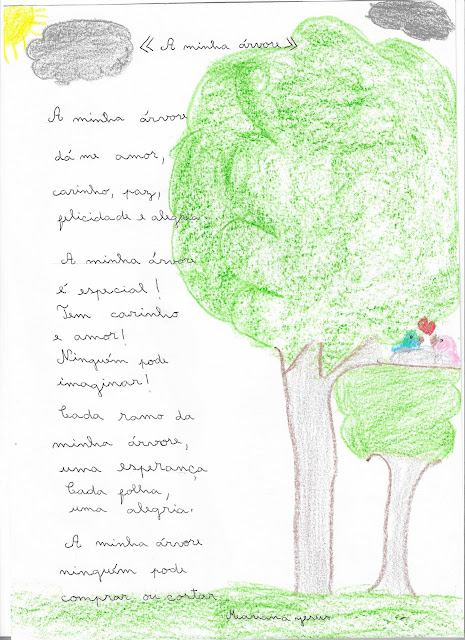 « A minha árvore »
A minha árvore
dá me amor,
carinho, paz,
felicidade e alegria
A minha árvore
é especial!
Tem carinho
e amor!
Ninguém pode
imaginar!
Cada ramo da
minha árvore,
uma esperança
Cada folha,
uma alegria.
A minha árvore
ninguém pode
comprar ou cortar
Mariana Jesus